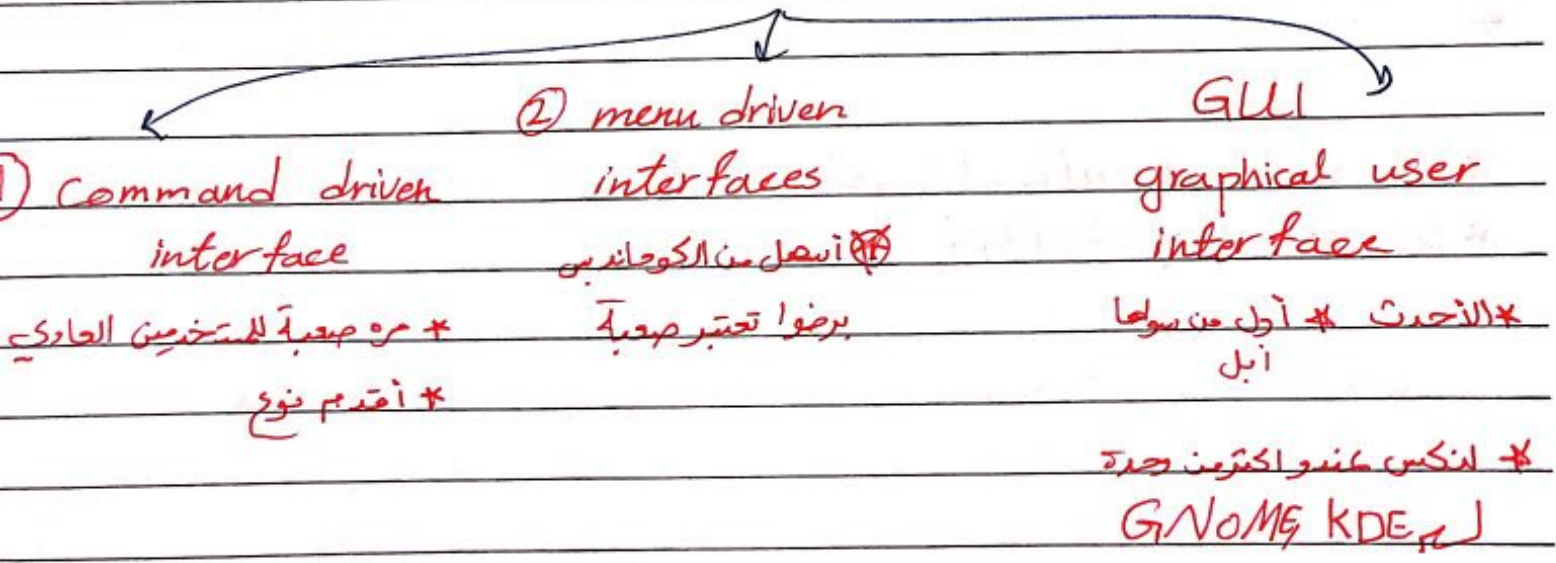 ① Command driven
interface
* مره صعبة للمستخدمين العادي
* أقدم نوع
② menu driven
interfaces
أسهل من الكوماند بس
برضوا تعتبر صعبة
GUI
graphical user
interface
* الأحدث * أول من سولها
أبل
* لنكس عندو اكثر من وحدة
GNOME, KDE